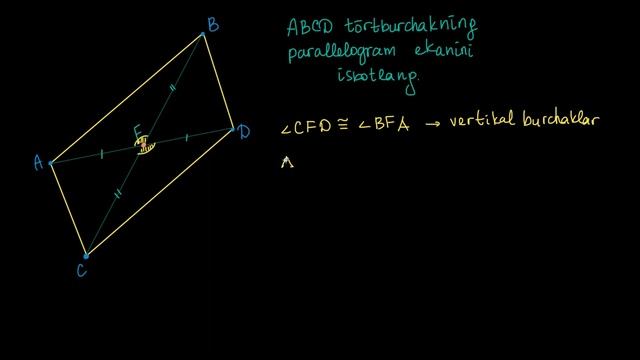 B
ABCD tōrtburchakning
parallelogram ekanini
isbotlang.
F
D
∠CFD ≅ ∠BFA → vertikal burchaklar
A
C